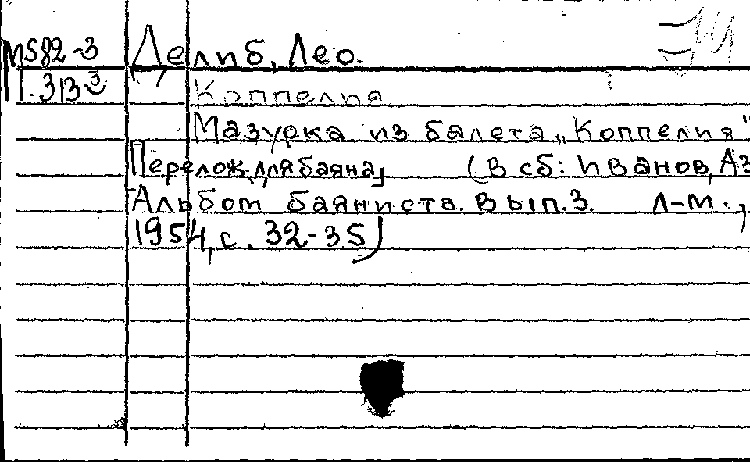 М582-3 Делиб, Лео.
1.313 3 Коппелия
Мазурка из балета „Коппелия"
Перелож. для баяна, (в сб: Иванов, Аз
Альбом баяниста. Вып. 3. Л-М.,
1954, с. 32-35)